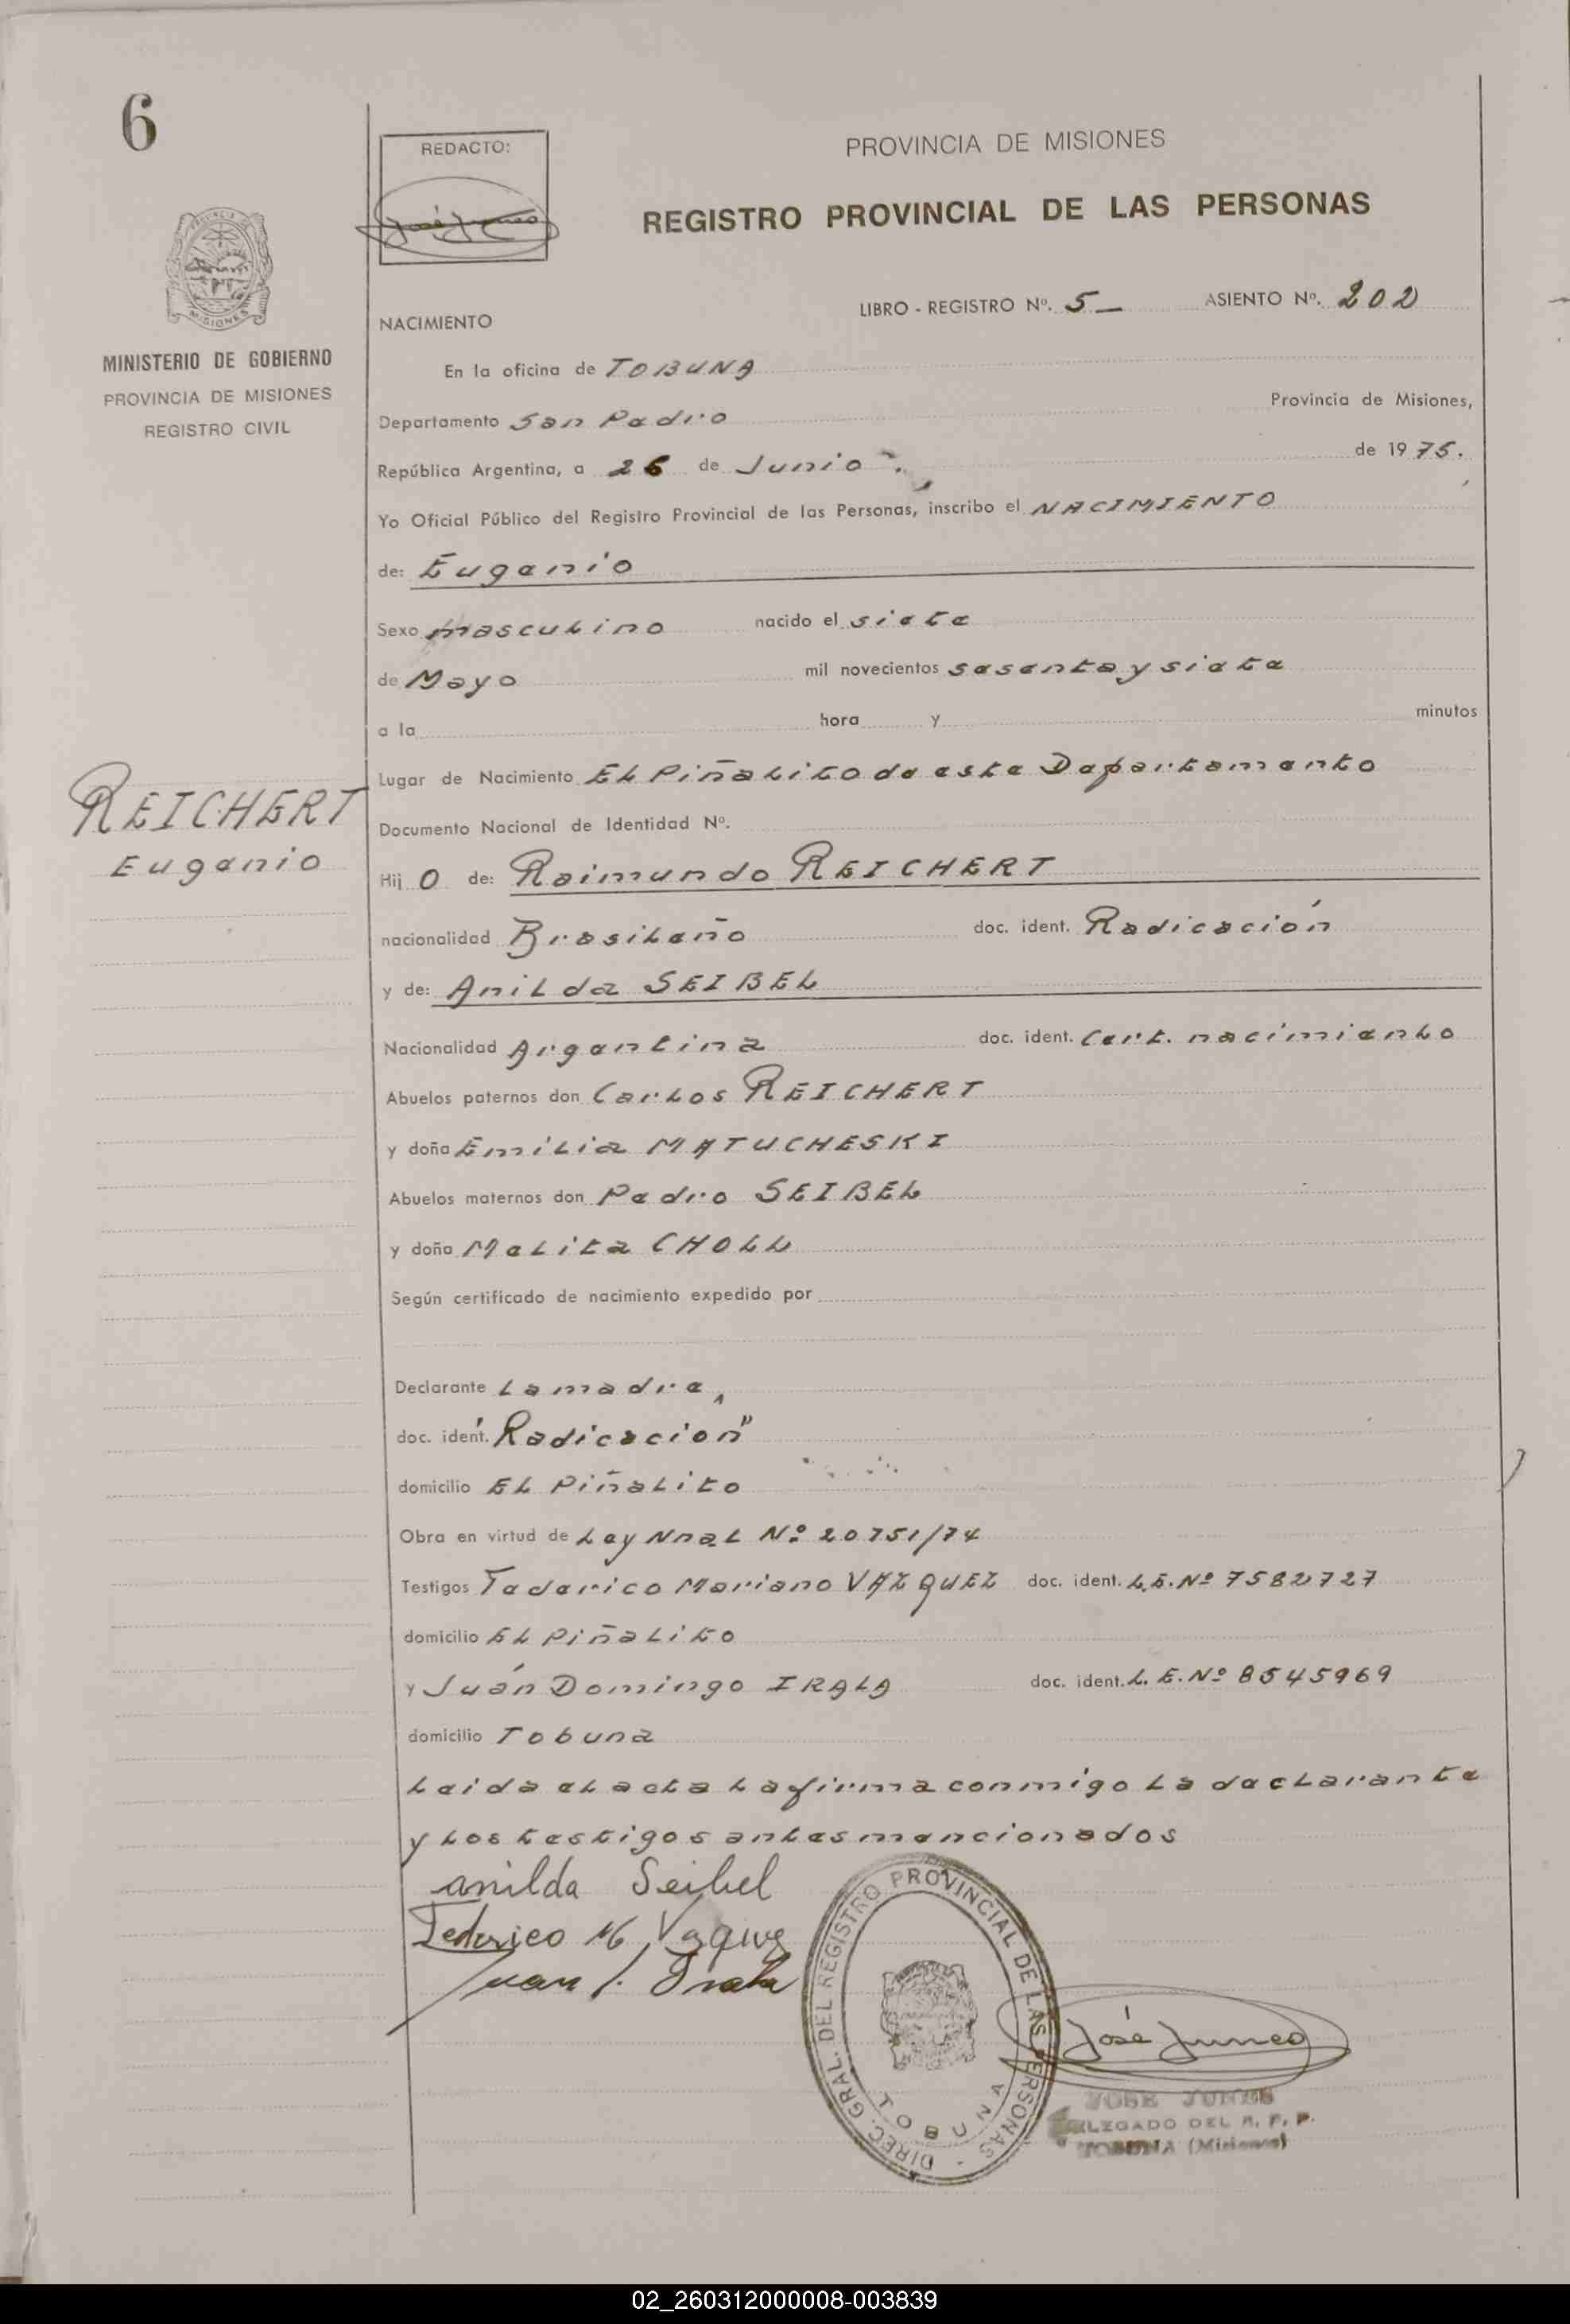 6
REDACTO:
José Juneo
PROVINCIA DE MISIONES
REGISTRO PROVINCIAL DE LAS PERSONAS
MISIONES
MINISTERIO DE GOBIERNO
PROVINCIA DE MISIONES
REGISTRO CIVIL
LIBRO - REGISTRO Nº. 5_ ASIENTO Nº. 202
NACIMIENTO
En la oficina de TOBUNA
Departamento San Pedro Provincia de Misiones,
República Argentina, a 26 de Junio de 1975.
Yo Oficial Público del Registro Provincial de las Personas, inscribo el NACIMIENTO
de: Eugenio
Sexo masculino nacido el siete
de Mayo mil novecientos sesenta y siete
a la hora y minutos
Lugar de Nacimiento El Piñalito de este Departamento
REICHERT
Eugenio
Documento Nacional de Identidad Nº.
Hij o de: Raimundo REICHERT
nacionalidad Brasileño doc. ident. Radicación
y de: Anilda SEIBEL
Nacionalidad Argentina doc. ident. Cert. nacimiento
Abuelos paternos don Carlos REICHERT
y doña Emilia MATUCHESKI
Abuelos maternos don Pedro SEIBEL
y doña Melita CHOLL
Según certificado de nacimiento expedido por
Declarante La madre,
doc. ident. "Radicacion"
domicilio El Piñalito
Obra en virtud de Ley Nnal Nº 20751/74
Testigos Federico Mariano VAZQUEZ doc. ident. L.E. Nº 7582727
domicilio El Piñalito
y Juán Domingo IRALA doc. ident. L.E. Nº 8545969
domicilio Tobuna
Leida el acta la firma conmigo la declarante
y los testigos antes mencionados
anilda Seibel
Federico M Vazquez
Juan D. Irala
DIREC. GRAL. DEL REGISTRO PROVINCIAL DE LAS PERSONAS -
TOBUNA
José Juneo
DELEGADO DEL R. P. P.
TOBUNA (Misiones)
02_260312000008-003839